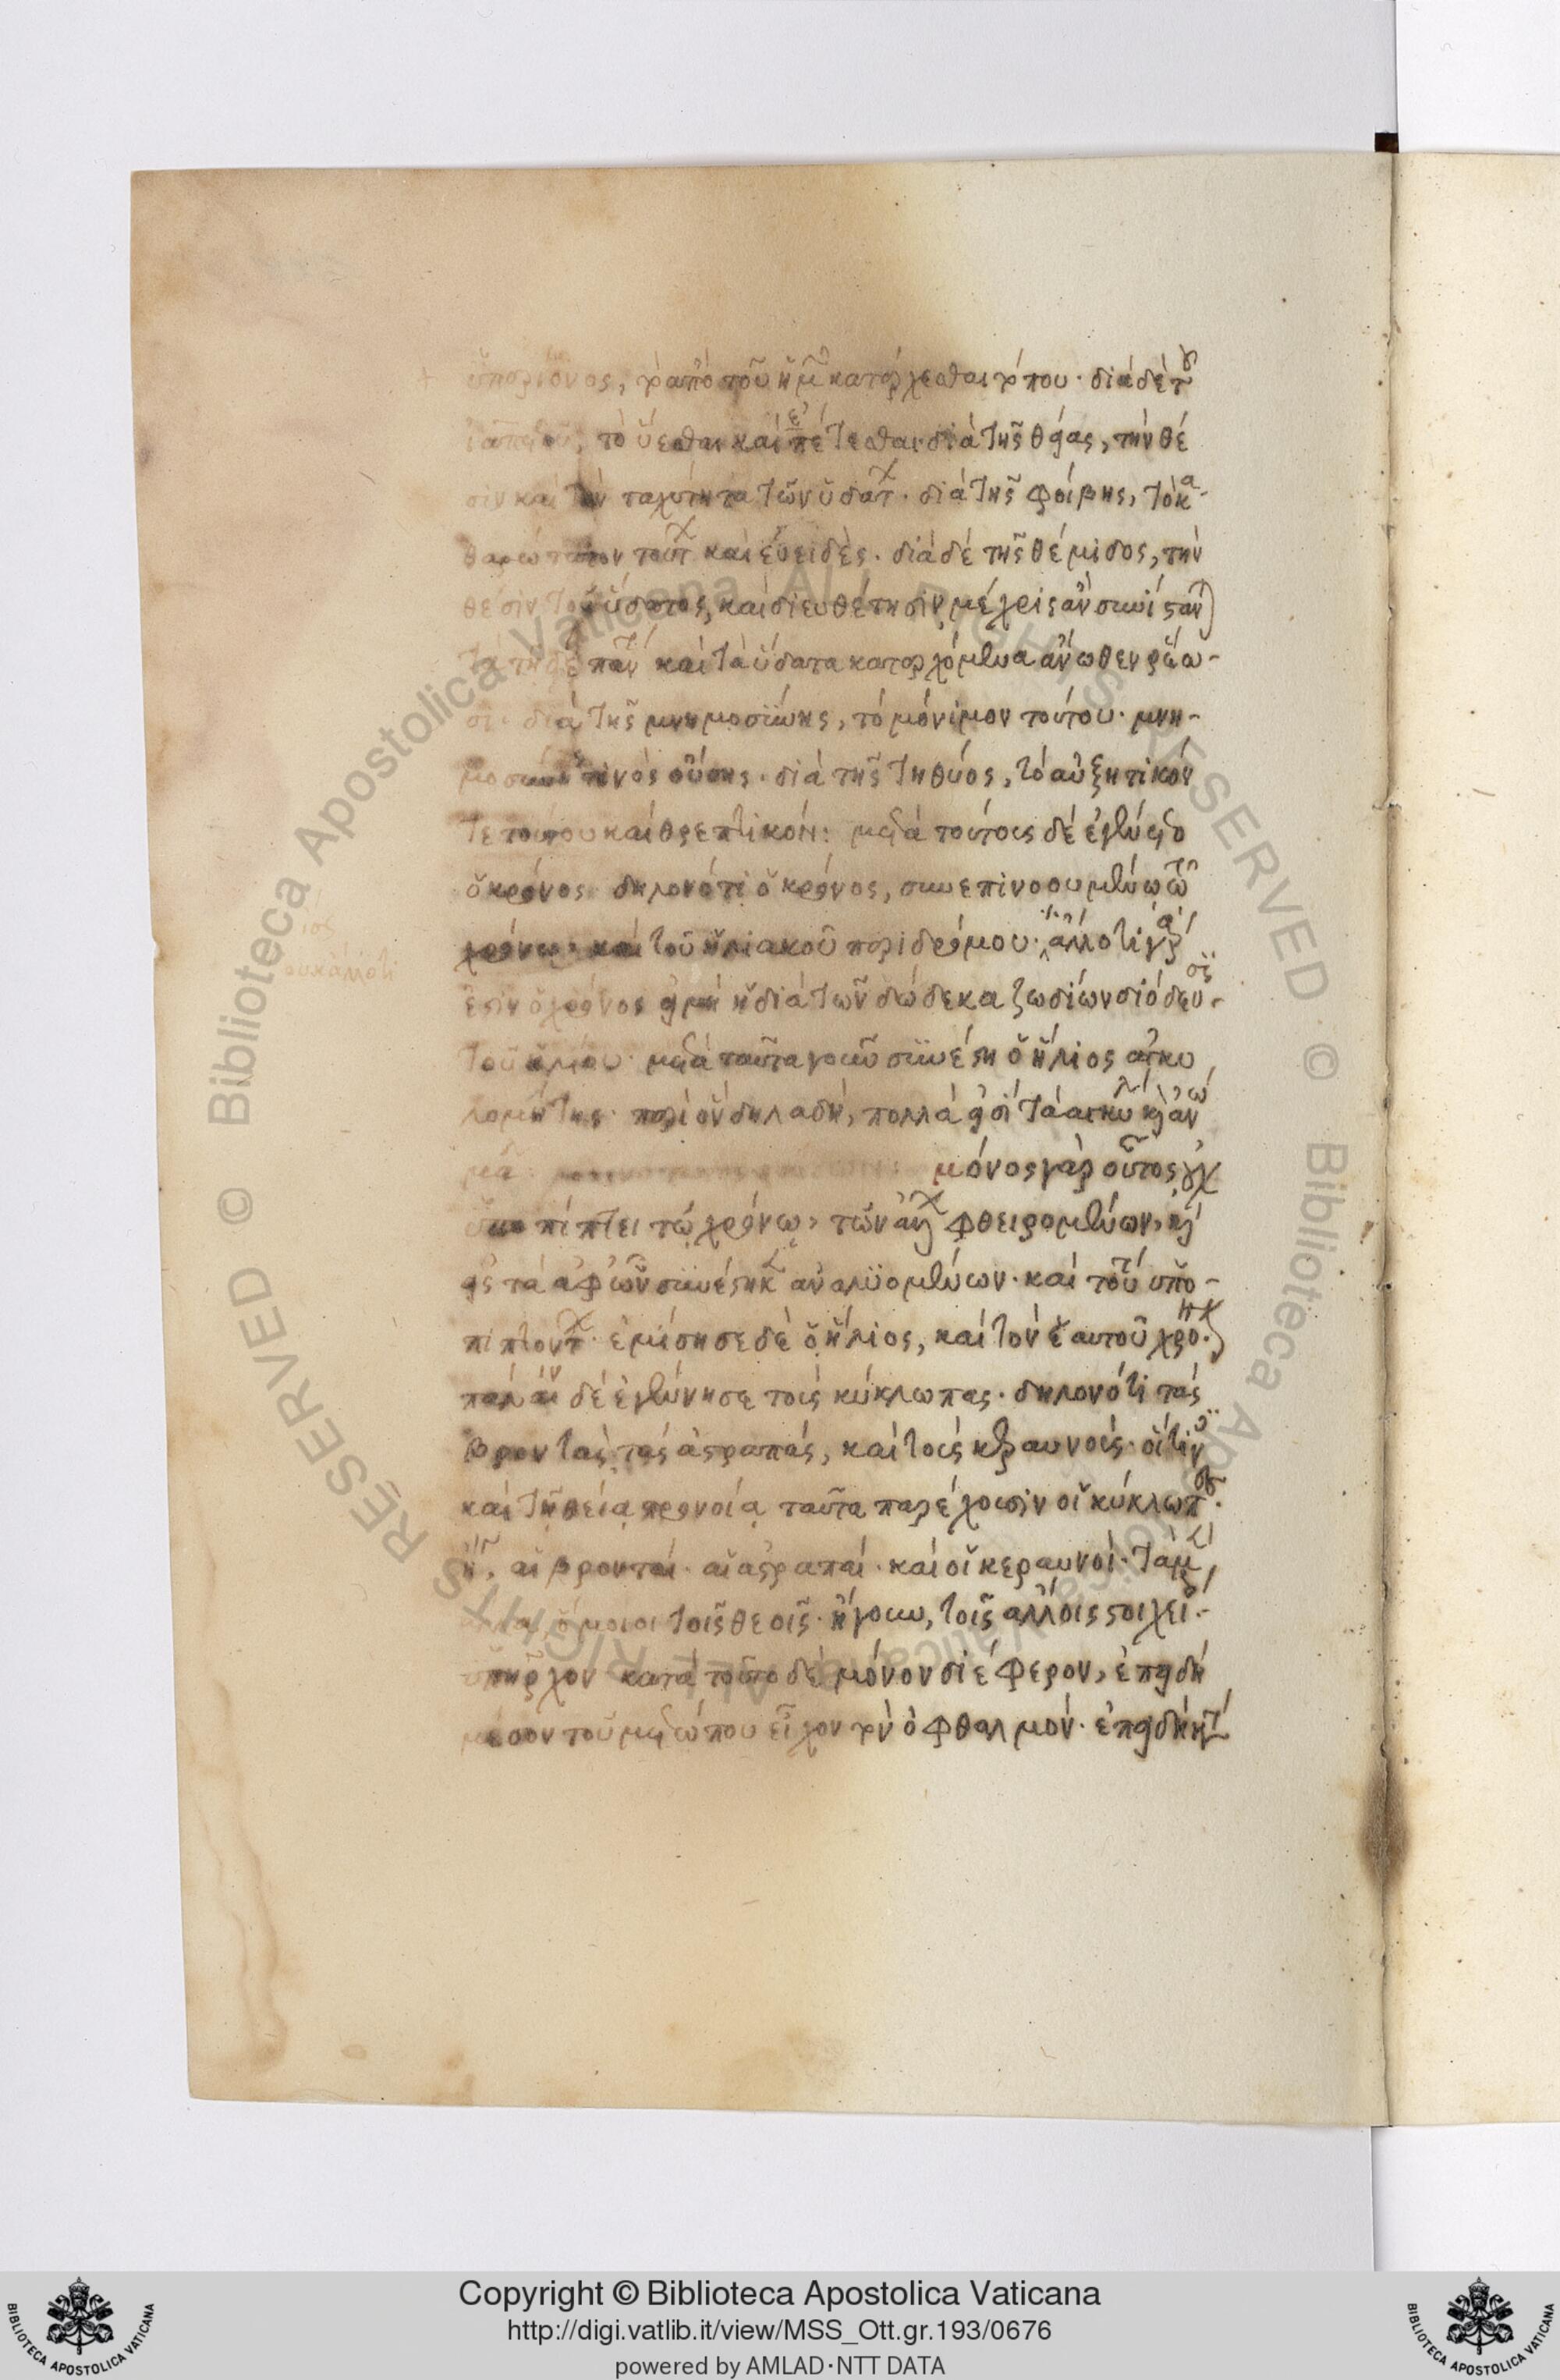 ὑπερίονος, τὸ ἀπὸ τοῦ ἡμῶν κατέρχεσθαι τόπου. διὰ δὲ τοῦ
ἰαπετοῦ, τὸ ὕεσθαι καὶ πέτεσθαι. διὰ τῆς θείας, τὴν θέ
σιν καὶ τὴν ταχύτητα τῶν ὑδάτων. διὰ τῆς φοίβης, τὸ κα-
θαρώτατον τούτων καὶ εὐειδὲς. διὰ δὲ τῆς θέμιδος, τὴν
θέσιν τοῦ ὕδατος, καὶ διευθέτησιν μέχρις ἂν συνίσταν
καὶ τὰ ὕδατα κατερχόμενα ἄνωθεν ῥέω-
σι. διὰ τῆς μνημοσύνης, τὸ μόνιμον τούτου. μνη-
μοσύνη τινὸς οὔσης. διὰ τῆς τηθύος, τὸ αὐξητικόν
τε τούτου καὶ θρεπτικόν: μετὰ τούτους δὲ ἐγένετο
ὁ κρόνος. δηλονότι ὁ κρόνος, συνεπινοουμένῳ τῷ
χρόνω. καὶ τοῦ ἡλιακοῦ περιδρόμου. ἄλλο τι γάρ
ἐστιν ὁ χρόνος εἰ μὴ ἡ διὰ τῶν δώδεκα ζωδίων διόδευσις
τοῦ ἡλίου. μετὰ ταῦτα γοῦν συνέστη ὁ ἥλιος ἀγκυ
λομήτης. περὶ ὃν δηλαδή, πολλά εἰσι τὰ ἀγκύλα καὶ ἀνώ
μαλα: μόνος γὰρ οὗτος οὐχ
ὑποπίπτει τῷ χρόνω, τῶν ἄλλων φθειρομένων, καὶ
εἰς τὰ ἀφ' ὧν συνέστηκεν ἀναλυομένων. καὶ τούτῳ ὑπο-
πιπτόντων. ἐμίσησε δὲ ὁ ἥλιος, καὶ τὸν ἑαυτοῦ
πάλιν δὲ ἐγέννησε τοὺς κύκλωπας. δηλονότι τὰς
βροντὰς τὰς ἀστραπάς, καὶ τοὺς κεραυνούς. οἵτινες
καὶ τῇ θείᾳ προνοίᾳ ταῦτα παρέχουσιν οἱ κύκλωπες.
αἱ βρονταὶ. αἱ ἀστραπαὶ. καὶ οἱ κεραυνοὶ. τὰ μὲν
ἄλλα, ὅμοιοι τοῖς θεοῖς. ἤγουν, τοῖς ἄλλοις στοιχείοις
ὑπῆρχον κατὰ τοῦτο δὲ μόνον διέφερον, ἐπειδὴ
μέσον τοῦ μετώπου εἶχον τὸν ὀφθαλμόν. ἐπειδὴ
οὐκ ἄλλο τι
Copyright © Biblioteca Apostolica Vaticana
http://digi.vatlib.it/view/MSS_Ott.gr.193/0676
powered by AMLAD·NTT DATA
BIBLIOTECA APOSTOLICA VATICANA
BIBLIOTECA APOSTOLICA VATICANA